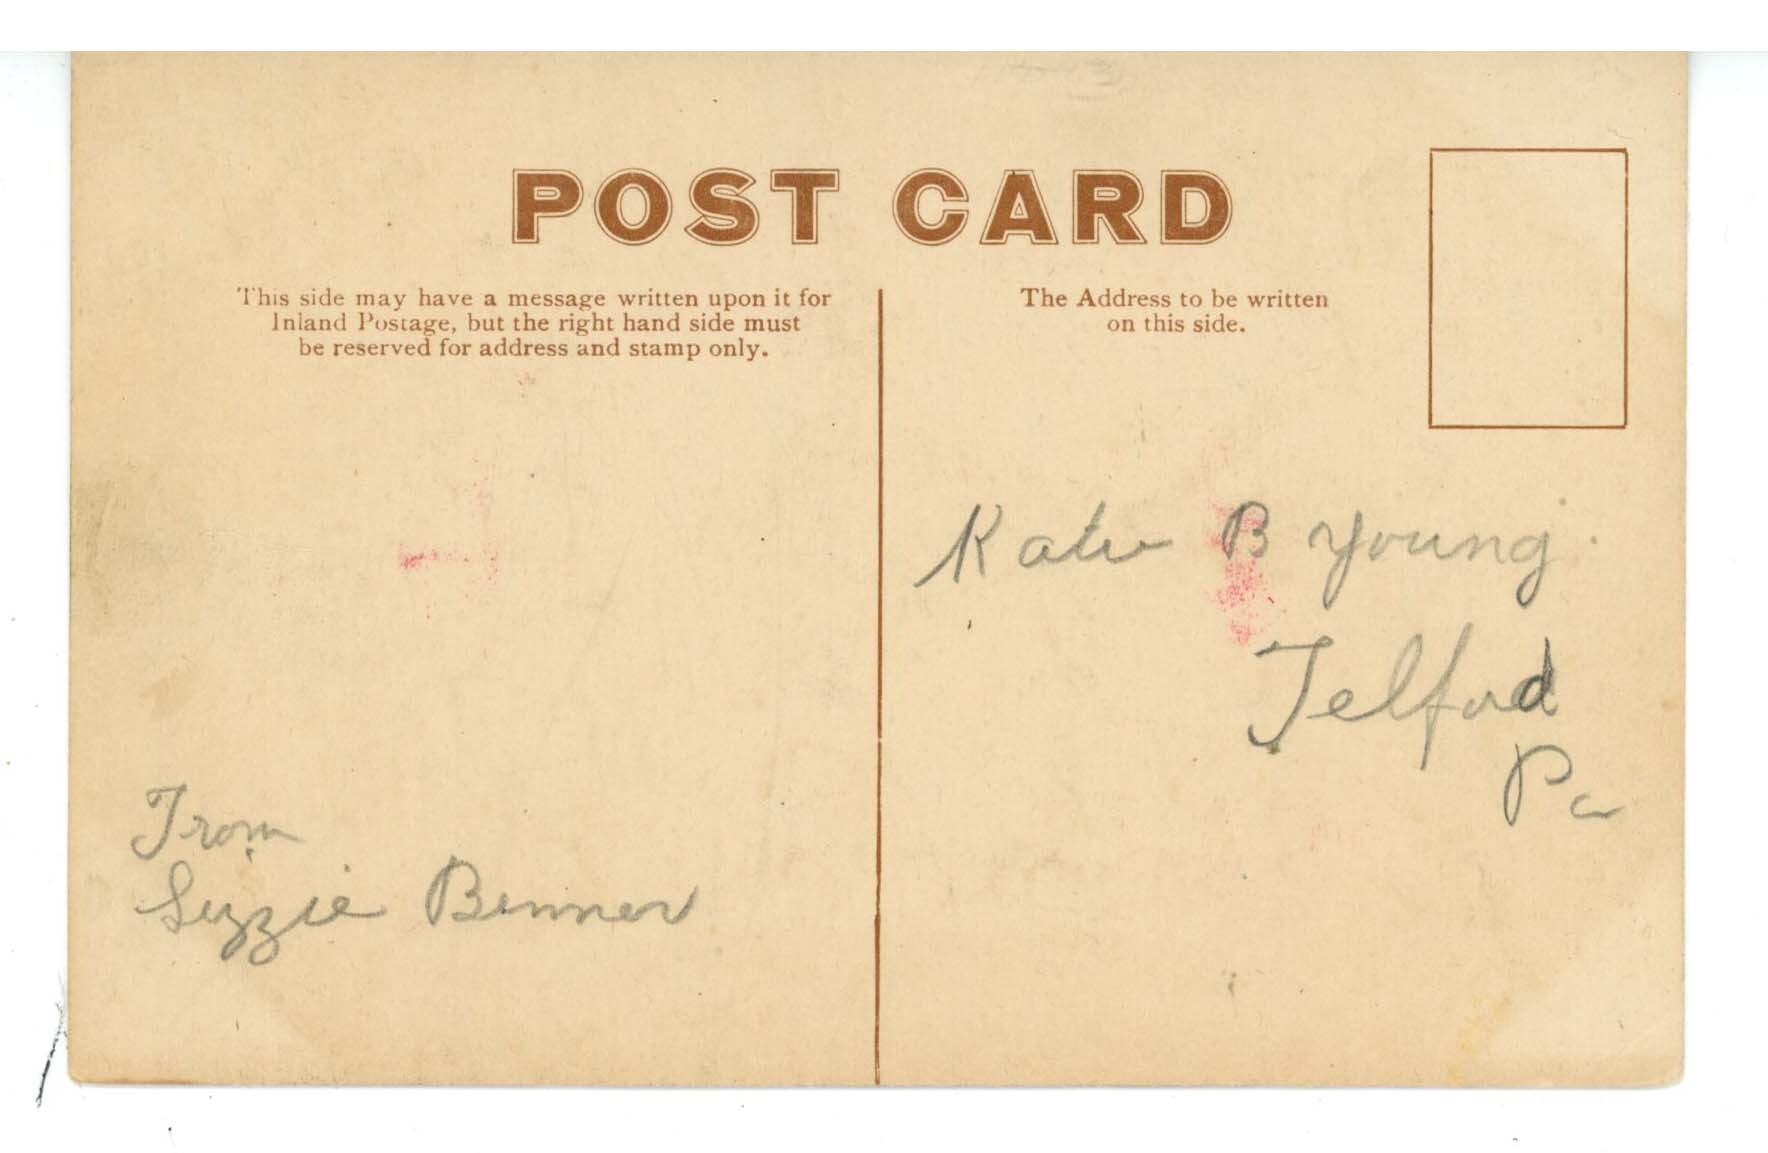 POST CARD
This side may have a message written upon it for
Inland Postage, but the right hand side must
be reserved for address and stamp only.
The Address to be written
on this side.
Katie B Young
Telford
Pa
From
Lizzie Benner